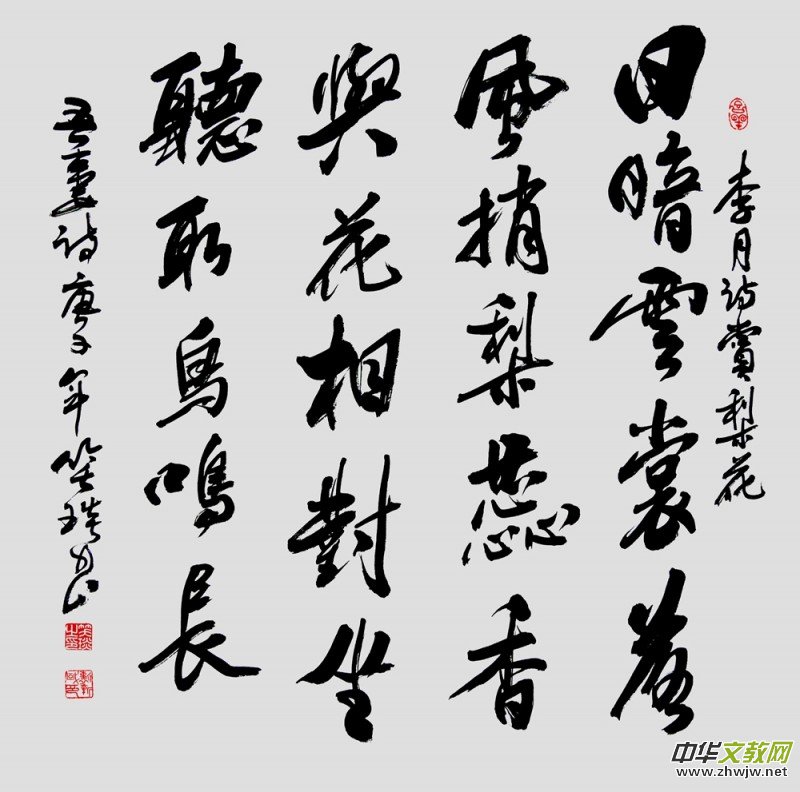 李月诗賞梨花
日暗雲裳
風捎梨蕊香
與花相對坐
聽取鳥鳴長
吾妻诗庚子年
中华文教网
www.zhwjw.net